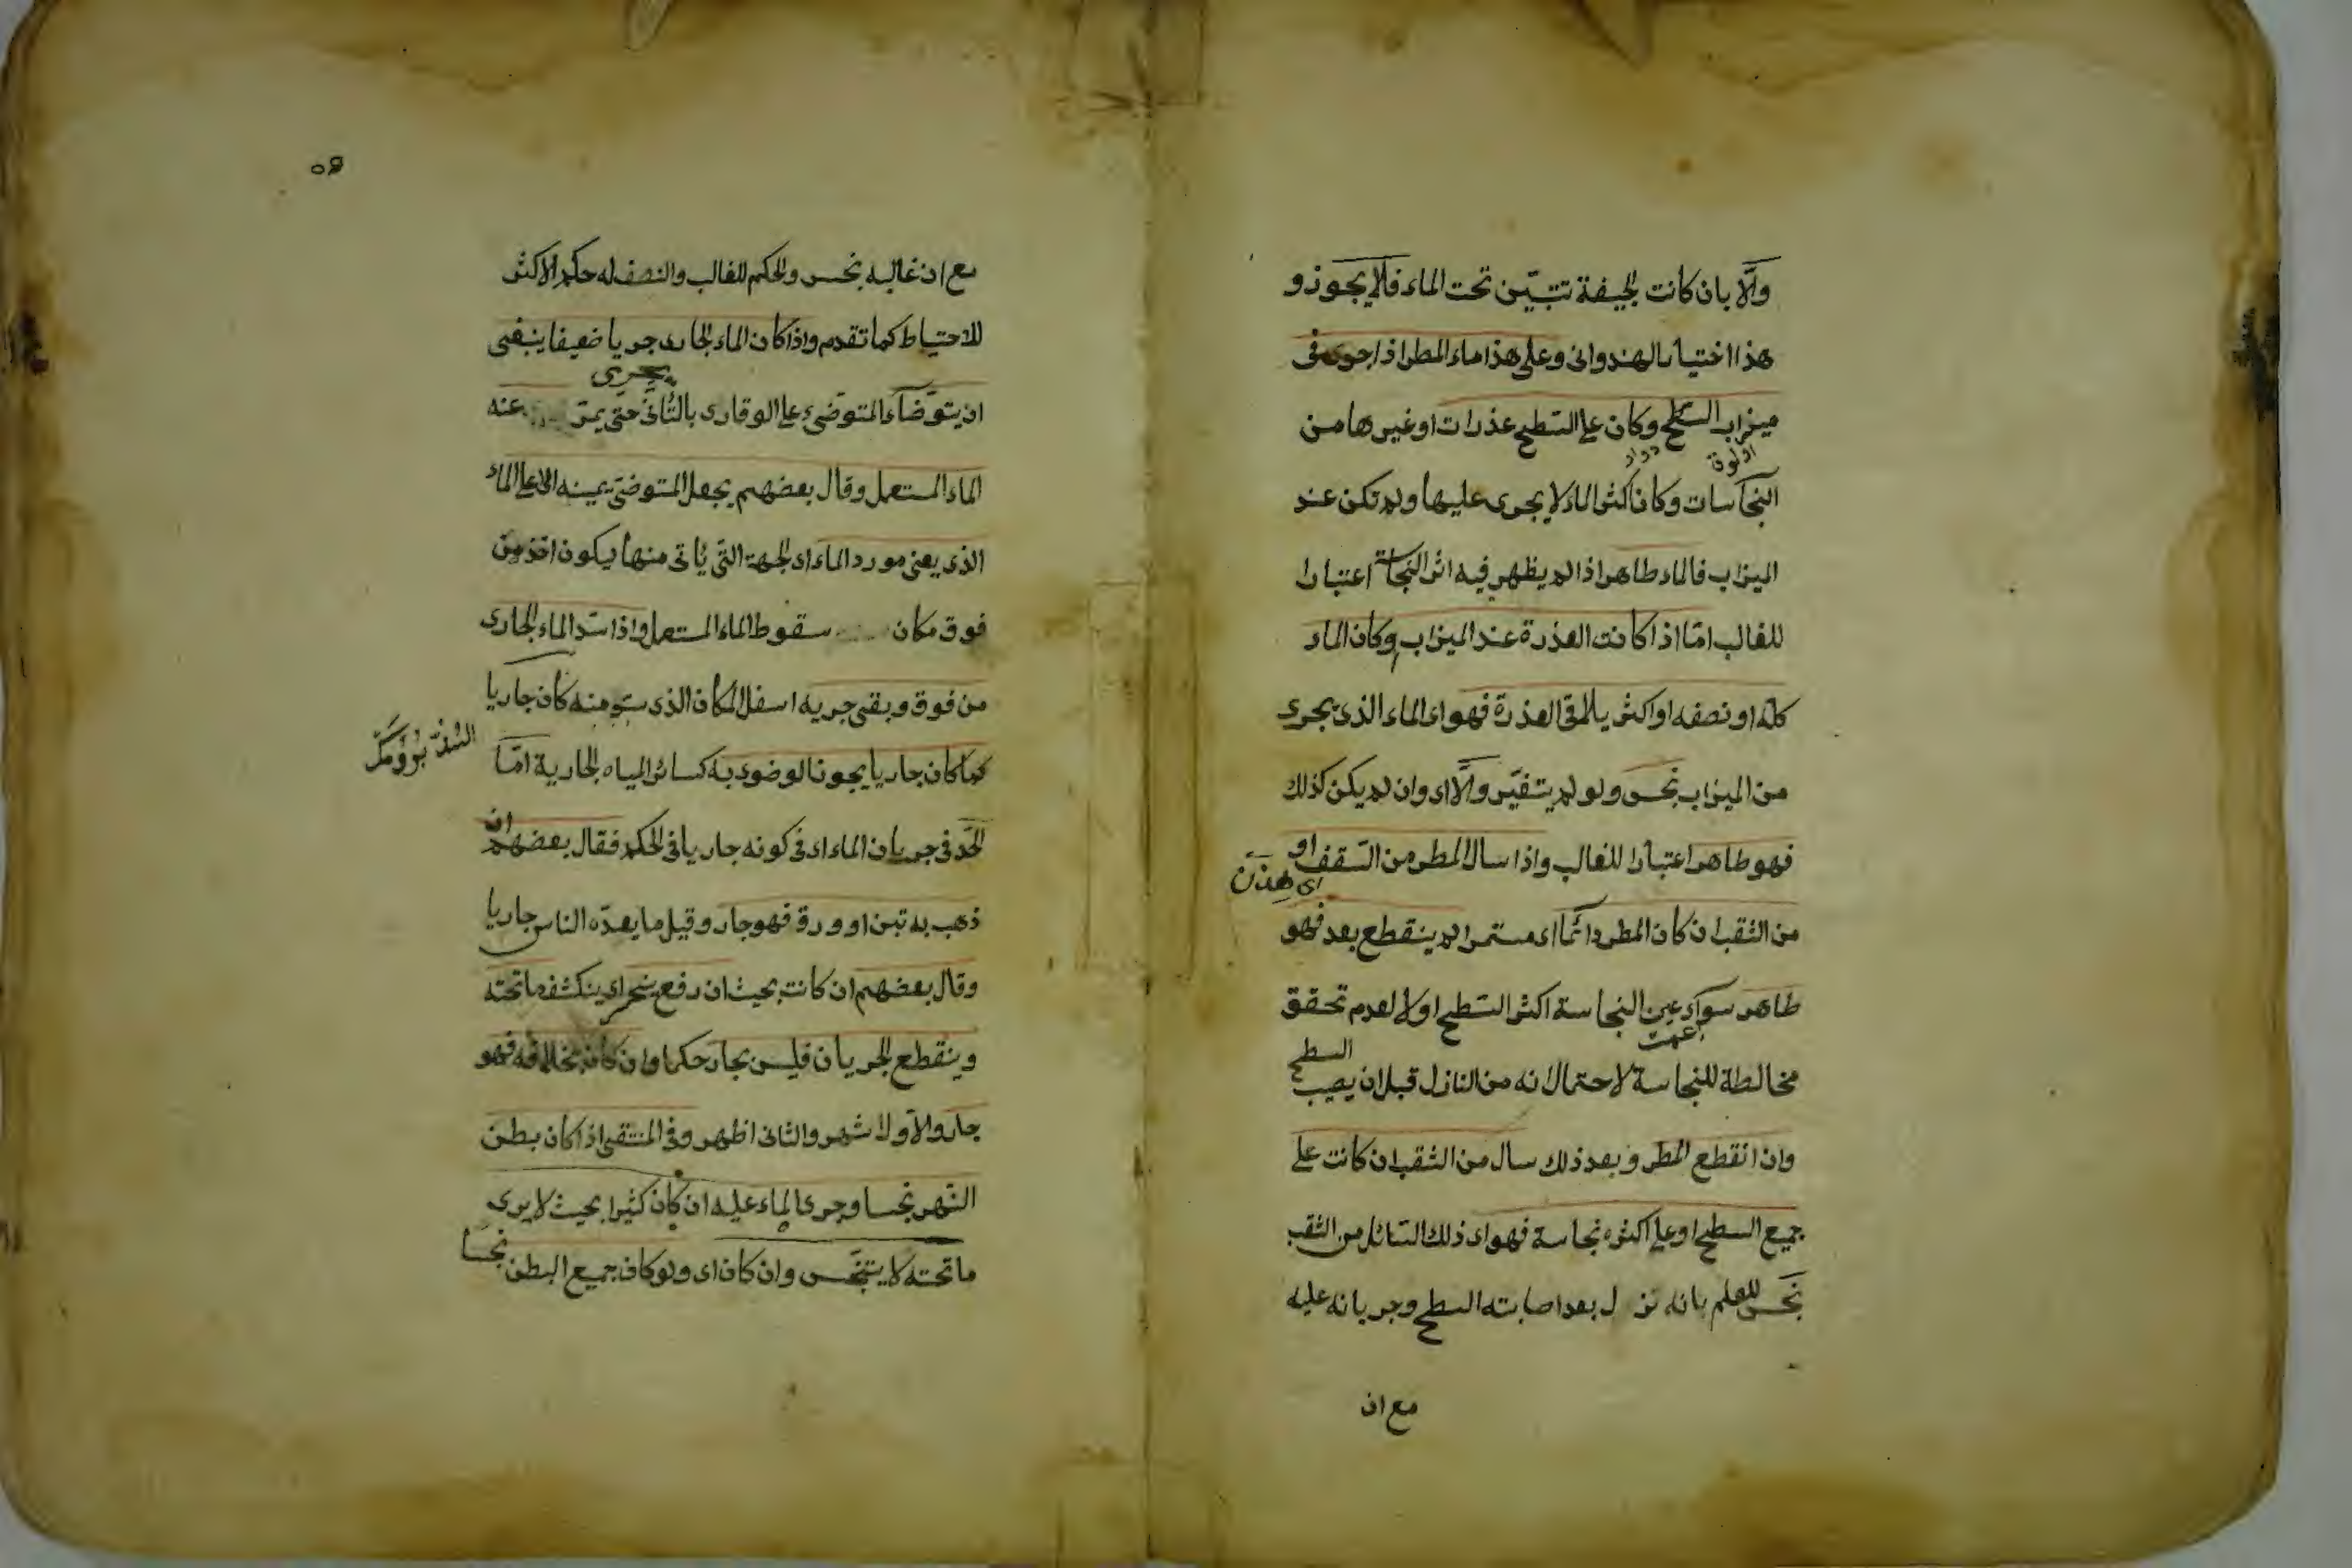 والا بان كانت الجيفة تتبين تحت الماء فلا يجوز و
هذا اختيار الهندوانى وعلى هذا ماء المطر اذا جرى فى
ميزاب السطح وكان على السطح عذرات او غيرها من
اولوق
النجاسات وكان اكثر الماء لا يجرى عليها ولم تكن عند
الميزاب فالماء طاهر اذا لم يظهر فيه اثر النجاسة اعتبارا
للغالب امّا اذا كانت العذرة عند الميزاب وكان الماء
كله او نصفه او اكثر يلاقى العذرة فهو اى الماء الذى يجرى
من الميزاب نجس ولو لم يتغيّر والّا اى وان لم يكن كذلك
فهو طاهر اعتبارا للغالب واذا سال المطر من السّقف او
من الثقب ان كان المطر دائمًا اى مستمرا لم ينقطع بعد فهو
طاهر سواء عين النجاسة اكثر السّطح او لا لعدم تحقق
عمت
مخالطة للنجاسة لاحتمال انه من النازل قبل ان يصيب السطح
وان انقطع المطر وبعد ذلك سال من الثقب ان كانت على
جميع السطح او على اكثره نجاسة فهو اى ذلك السّائل من الثقب
نجس للعلم بانه نزل بعد اصابته السطح وجريانه عليه
مع ان
٥٩
مع ان غالبه نجس والحكم للغالب والنصف له حكم الاكثر
للاحتياط كما تقدم واذا كان الماء الجارى يجرى جريا ضعيفا ينبغى
ان يتوضّأ المتوضىء على الوقار اى بالتّانى حتى يمرّ عنه
الماء المستعمل وقال بعضهم يجعل المتوضىّ يمينه الى اعلى الماء
الذى يعنى مورد الماء اى الجهة التّى يأتى منها ليكون اخذ من
فوق مكان سقوط الماء المستعمل واذا سدّ الماء الجارى
من فوق وبقى جريه اسفل المكان الذى سدّ منه كان جاريا
كما كان جاريا يجوز الوضوء به كسائر المياه الجارية امّا
الحدّ فى جريان الماء اى فى كونه جاريا فى الحكم فقال بعضهم ان
ذهب به تبن او ورق فهو جار وقيل ما يعدّه الناس جاريا
وقال بعضهم ان كانت بحيث ان رفع ينحسر اى ينكشف ما تحته
وينقطع الجريان فليس بجار حكما وان كان بخلافه فهو
جار والاول اشهر والثانى اظهر وفى المنتقى اذا كان بطن
النّهر نجسا وجرى الماء عليه ان كان كثيرا بحيث لا يرى
ما تحته لا يتنجّس وان كان اى ولو كان جميع البطن نجسا